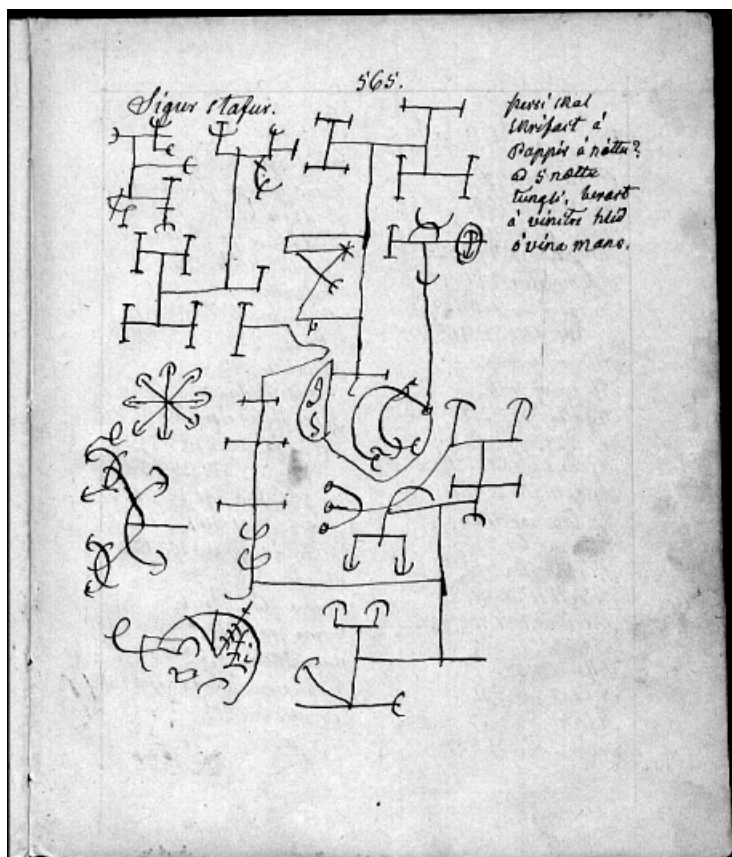 565.
Sigur stafur.
þessi skal
skrifast á
Pappír á nóttu?
á 5 nótta
tungli, berast
á vinstri hlið
óvina mans.